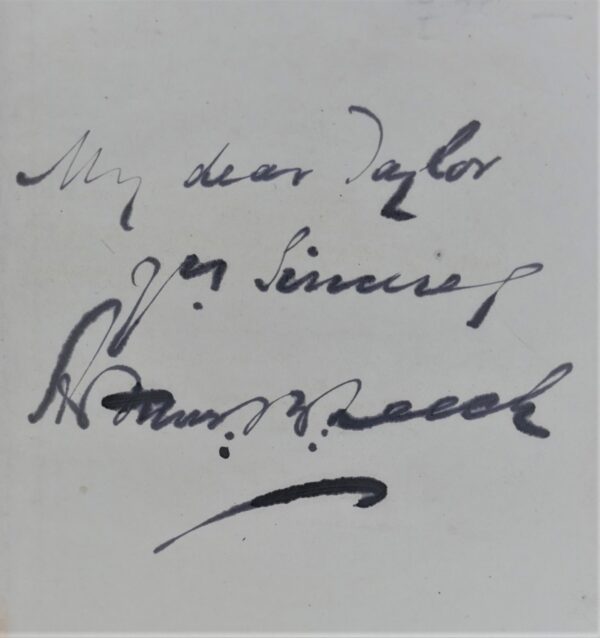 My dear Taylor
Yrs Sincerely
B. Leech